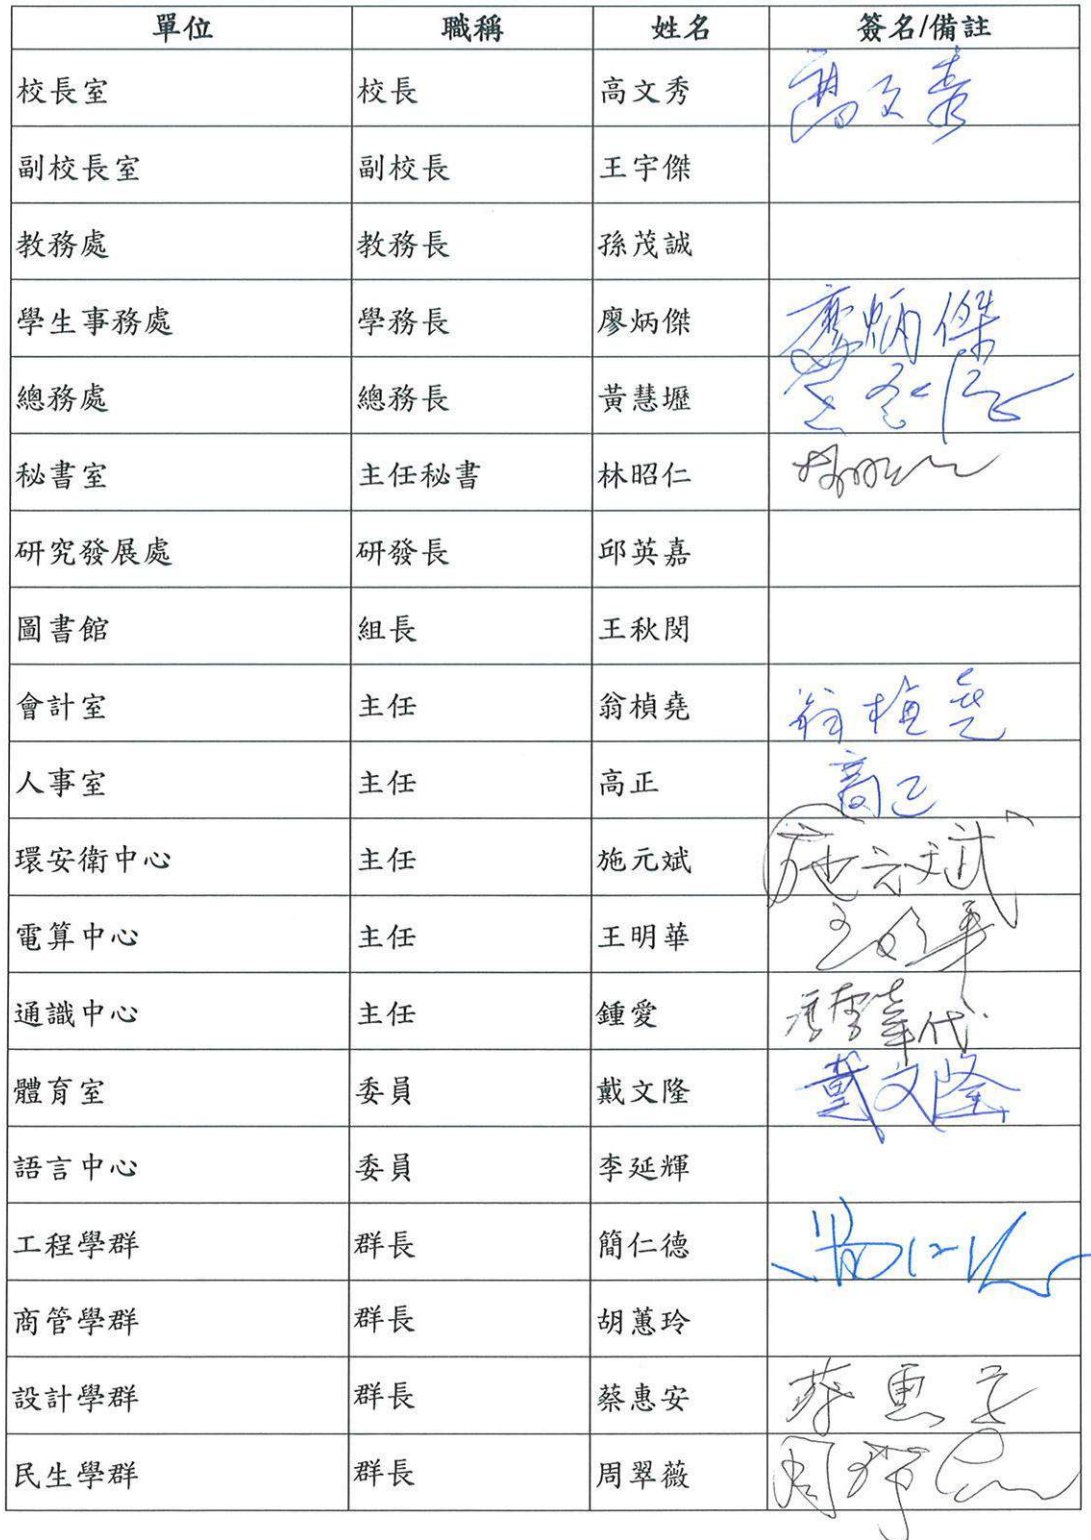 單位 職稱 姓名 簽名/備註
校長室 校長 高文秀 高文秀
副校長室 副校長 王宇傑
教務處 教務長 孫茂誠
學生事務處 學務長 廖炳傑 廖炳傑
總務處 總務長 黃慧壢
秘書室 主任秘書 林昭仁 林昭仁
研究發展處 研發長 邱英嘉
圖書館 組長 王秋閔
會計室 主任 翁楨堯 翁楨堯
人事室 主任 高正 高正
環安衛中心 主任 施元斌 施元斌
電算中心 主任 王明華 王明華
通識中心 主任 鍾愛
體育室 委員 戴文隆 戴文隆
語言中心 委員 李延輝
工程學群 群長 簡仁德 簡仁德
商管學群 群長 胡蕙玲
設計學群 群長 蔡惠安 蔡惠安
民生學群 群長 周翠薇